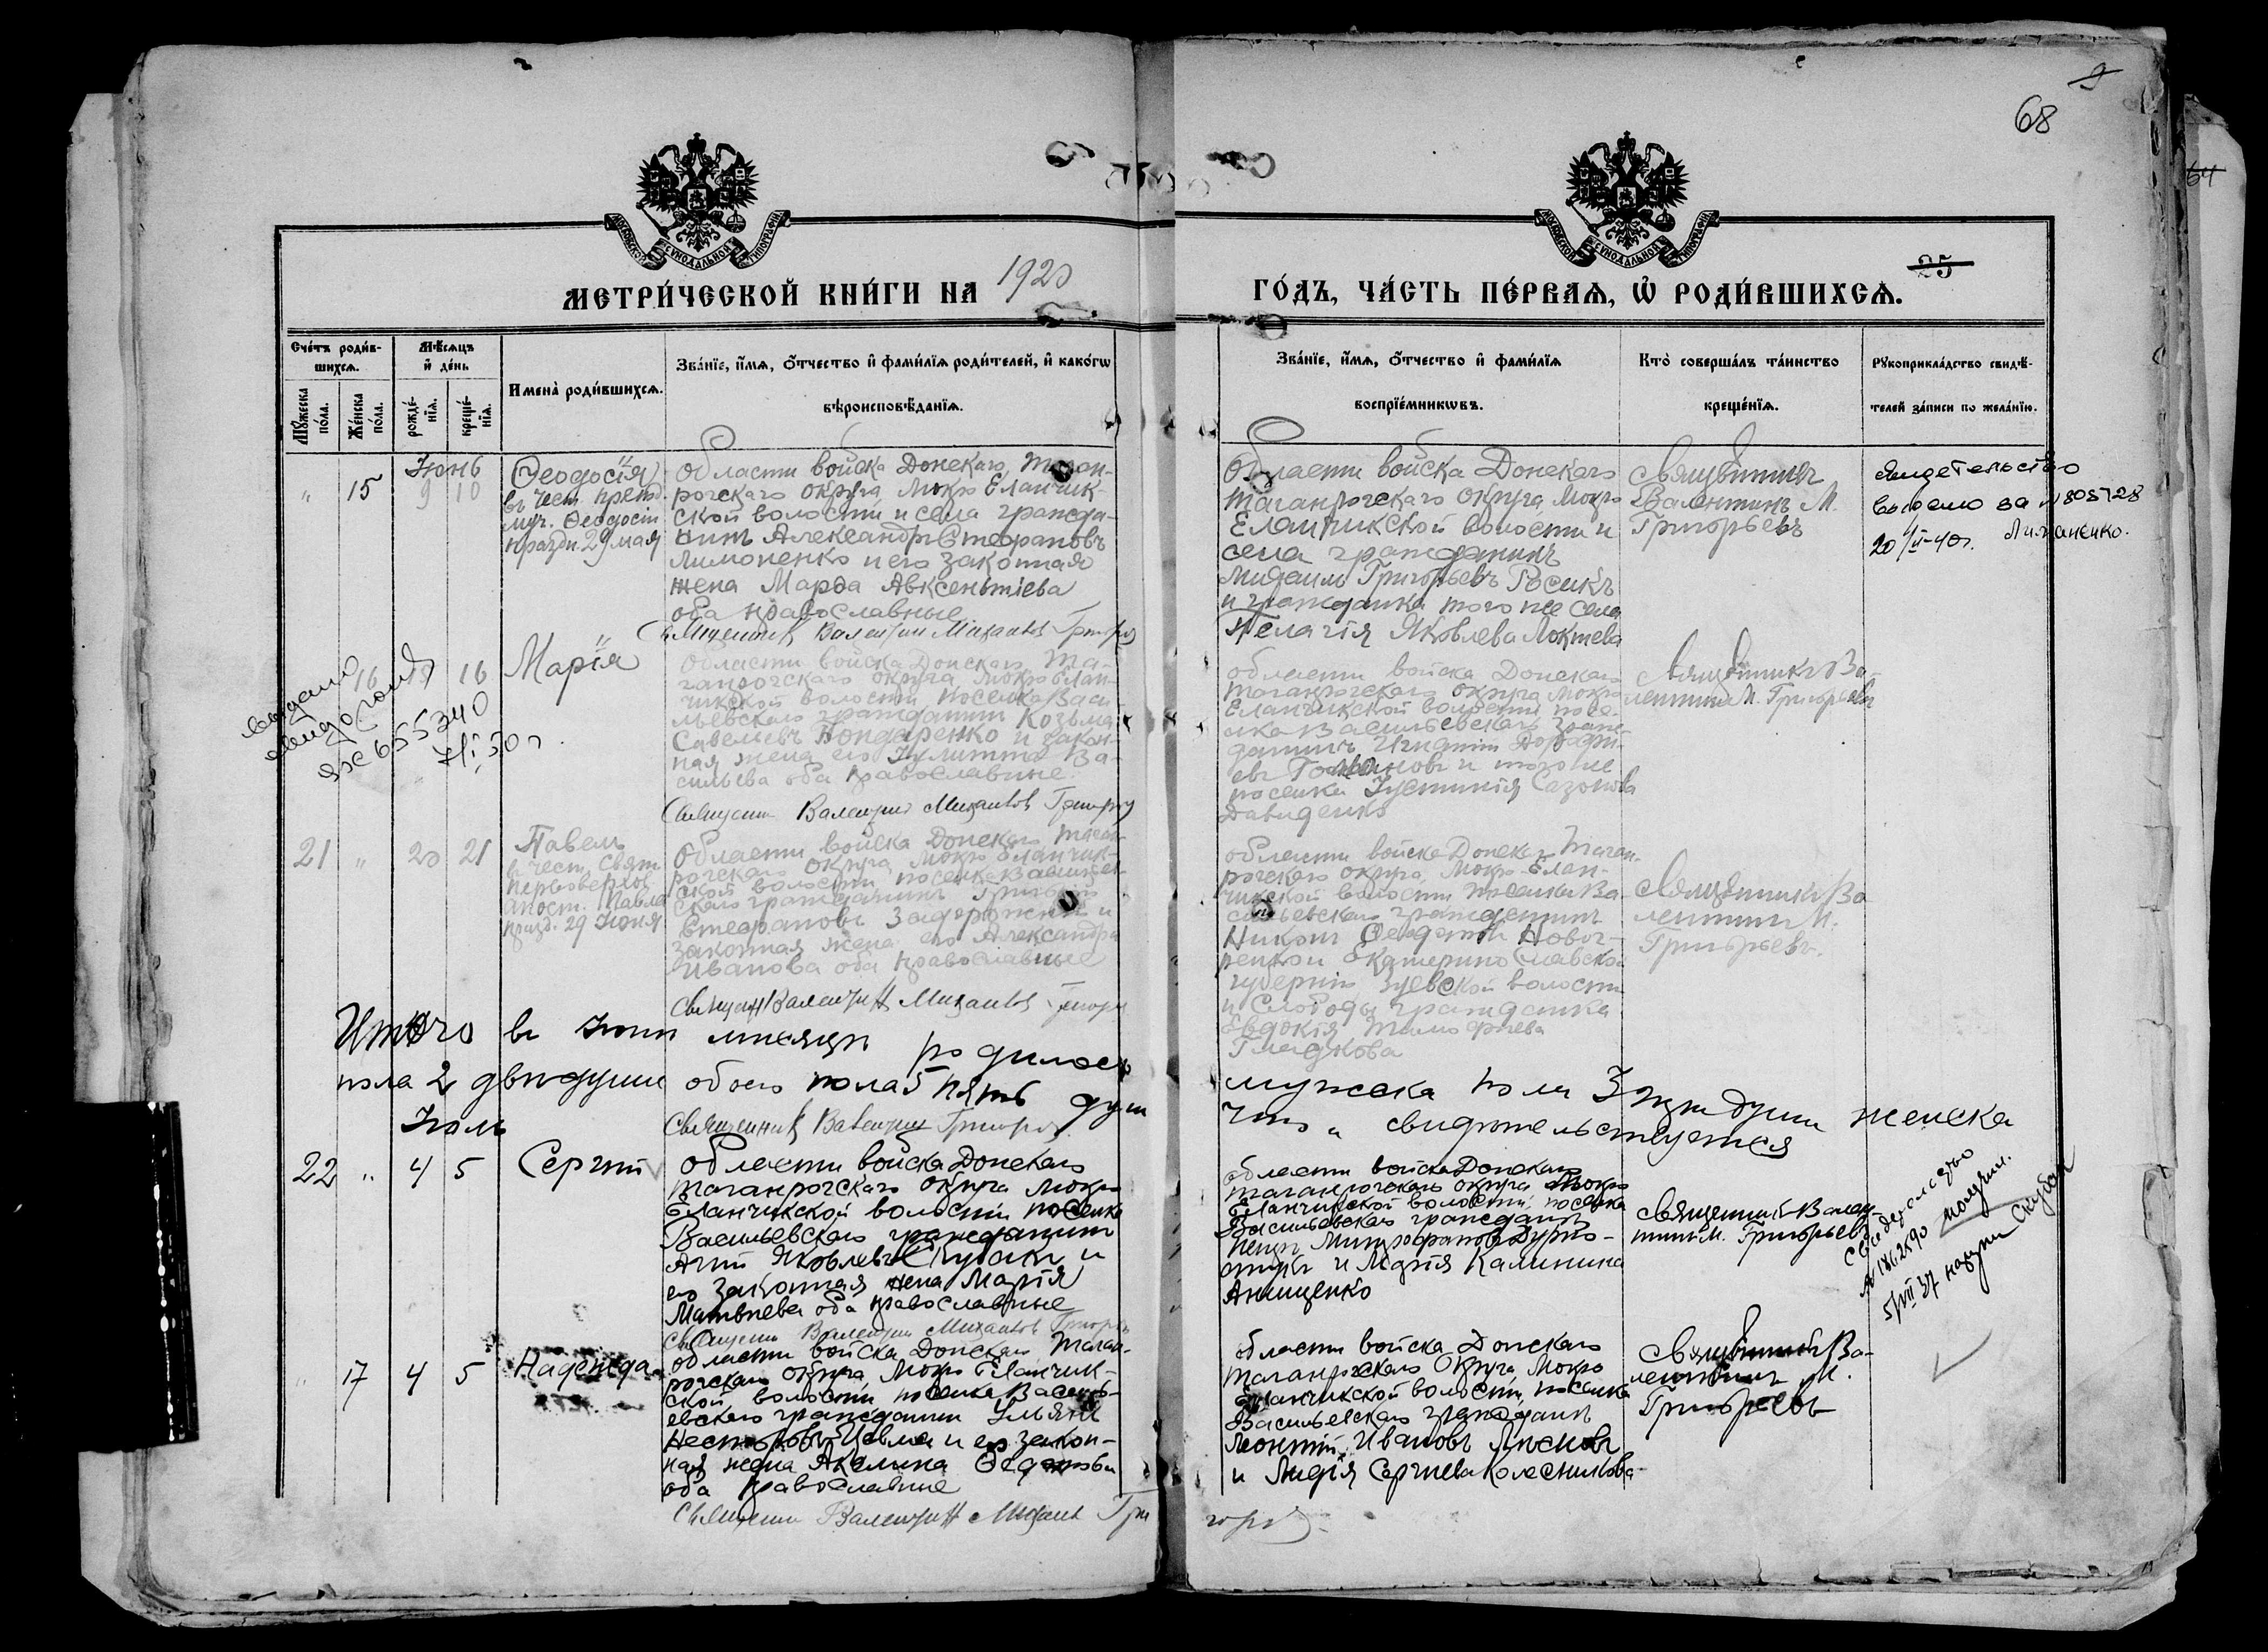 9
68
64
МОСКОВСКОЙ СѴНОДАЛЬНОЙ ТИПОГРАФІИ
МОСКОВСКОЙ СѴНОДАЛЬНОЙ ТИПОГРАФІИ
МЕТРИ́ЧЕСКОЙ КНИ́ГИ НА 1920
ГО́ДЪ, ЧА́СТЬ ПЕ́РВАѦ, Ѡ҆ РОДИ́ВШИХСѦ.
25
Сче́тъ роди́в-
шихсѧ.
Мꙋ́жеска по́ла.
Же́нска по́ла.
Мѣ́сѧцъ
и҆ де́нь
рожде́-
нїѧ.
креще́-
нїѧ.
Имена̀ роди́вшихсѧ.
Зва́нїе, и҆́мѧ, ѻ҆́тчество и҆ фами́лїѧ роди́телей, и҆ како́гѡ
вѣроисповѣ́данїѧ.
Зва́нїе, и҆́мѧ, ѻ҆́тчество и҆ фами́лїѧ
воспрїе́мникѡвъ.
Кто̀ соверша́лъ та́инство
креще́нїѧ.
Рꙋкоприкла́дство свидѣ́-
телей за́писи по жела́нїю.
Июнь
" 15 9 10
Ѳеодосія
въ чест. преп.
муч. Ѳеодосіи
праздн. 29 мая
Области войска Донскаго, Таган-
рогскаго округа, Мокро Еланчик-
ской волости и села гражда-
нинъ Александръ Стефановъ
Лимоненко и его законная
жена Марѳа Авксентіева
оба православные
Священникъ Валентин Михайлов Григорьев
Области войска Донскаго
Таганрогскаго округа, Мокро
Еланчикской волости и
села гражданинъ
Михаилъ Григорьевъ Косикъ
и гражданка того же села
Пелагія Яковлева Локтева
Священникъ
Валентинъ М.
Григорьевъ
свидетельство
выдано за № 805728
20/II-40г. Лиманенко.
16 15 16
Марія
выдано
свидетельство
655340
50 г.
Области войска Донскаго, Та-
ганрогскаго округа, Мокро Елан-
чикской волости поселка Васи-
льевскаго гражданин Козьма
Савельевъ Бондаренко и закон-
ная жена его Іулитта Ва-
сильева оба православные.
Священник Валентин Михайлов Григорьев
области войска Донскаго
Таганрогскаго округа, Мокро
Еланчикской волости посе-
лка Васильевскаго граж-
данинъ Игнатій
и того же
поселка Іустинія Сазонова
Давиденко
Священникъ Ва-
лентинъ М. Григорьевъ
21 " 20 21
Павелъ
въ чест. Свят.
первоверхов.
апост. Павла
празд. 29 Июня
Области войска Донскаго Таган-
рогскаго округа, Мокро Еланчик-
ской волости, поселка Васильев-
скаго гражданинъ Григорій
Стефановъ Задорожній и
законная жена его Александра
Иванова оба православные
Священ. Валентин Михайлов Григорьев
области войска Донскаг. Таган-
рогскаго округа, Мокро-Елан-
чикской волости поселка Ва-
сильевскаго гражданинъ
Никонъ
Екатеринославской
губерніи, Зуевской волости
и Слободы гражданка
Евдокія Тимофеева
Гладкова
Священникъ Ва-
лентинъ М.
Григорьевъ.
Итого в Июнѣ мѣсяцѣ родилось
мужска пола 3 три души женска
пола 2 двѣ души обоего пола 5 пять душ
Что и свидѣтельствуется
Священник Валентин Григорьев
Июль
22 " 4 5
Сергій
Области войска Донскаго
Таганрогскаго округа Мокро
Еланчикской волости поселка
Васильевскаго гражданинъ
Яковлевъ Скубакъ и
его законная жена Марія
Матвѣева оба православные
Священн Валентин Михайлов Григорьев
области войска Донскаго
Таганрогскаго округа Мокро
Еланчикской волости, поселка
Васильевскаго гражданинъ
Митрофановъ
и Марія Калинина
Анищенко
Священникъ Вален-
тинъ М. Григорьевъ
Свидетельство
№ 1862590 получил.
5/VII 37 Скубак
" 17 4 5
Надежда
области войска Донскаго, Таган-
рогскаго округа, Мокро Еланчик-
ской волости поселка Василь-
евскаго гражданин Ульянъ
Несторовъ и его закон-
ная жена Акелина Ѳедотова
оба православные
Священн Валентин Михаил Гри
горьев
области войска Донскаго
Таганрогскаго Округа, Мокро
Еланчикской волости, поселка
Васильевскаго гражданинъ
Леонтій Ивановъ
и Лидія Сергиева Колесникова
Священникъ Ва-
лентинъ М.
Григорьевъ